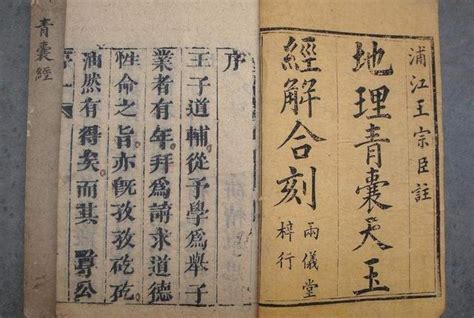 浦江王宗臣註
地理青囊天玉
經解合刻
兩儀堂
梓行
序
王子道輔從予學爲舉子
業者有年拜爲請求道德
性命之旨亦既孜孜矻矻
油然有得矣而其尊公
青囊經